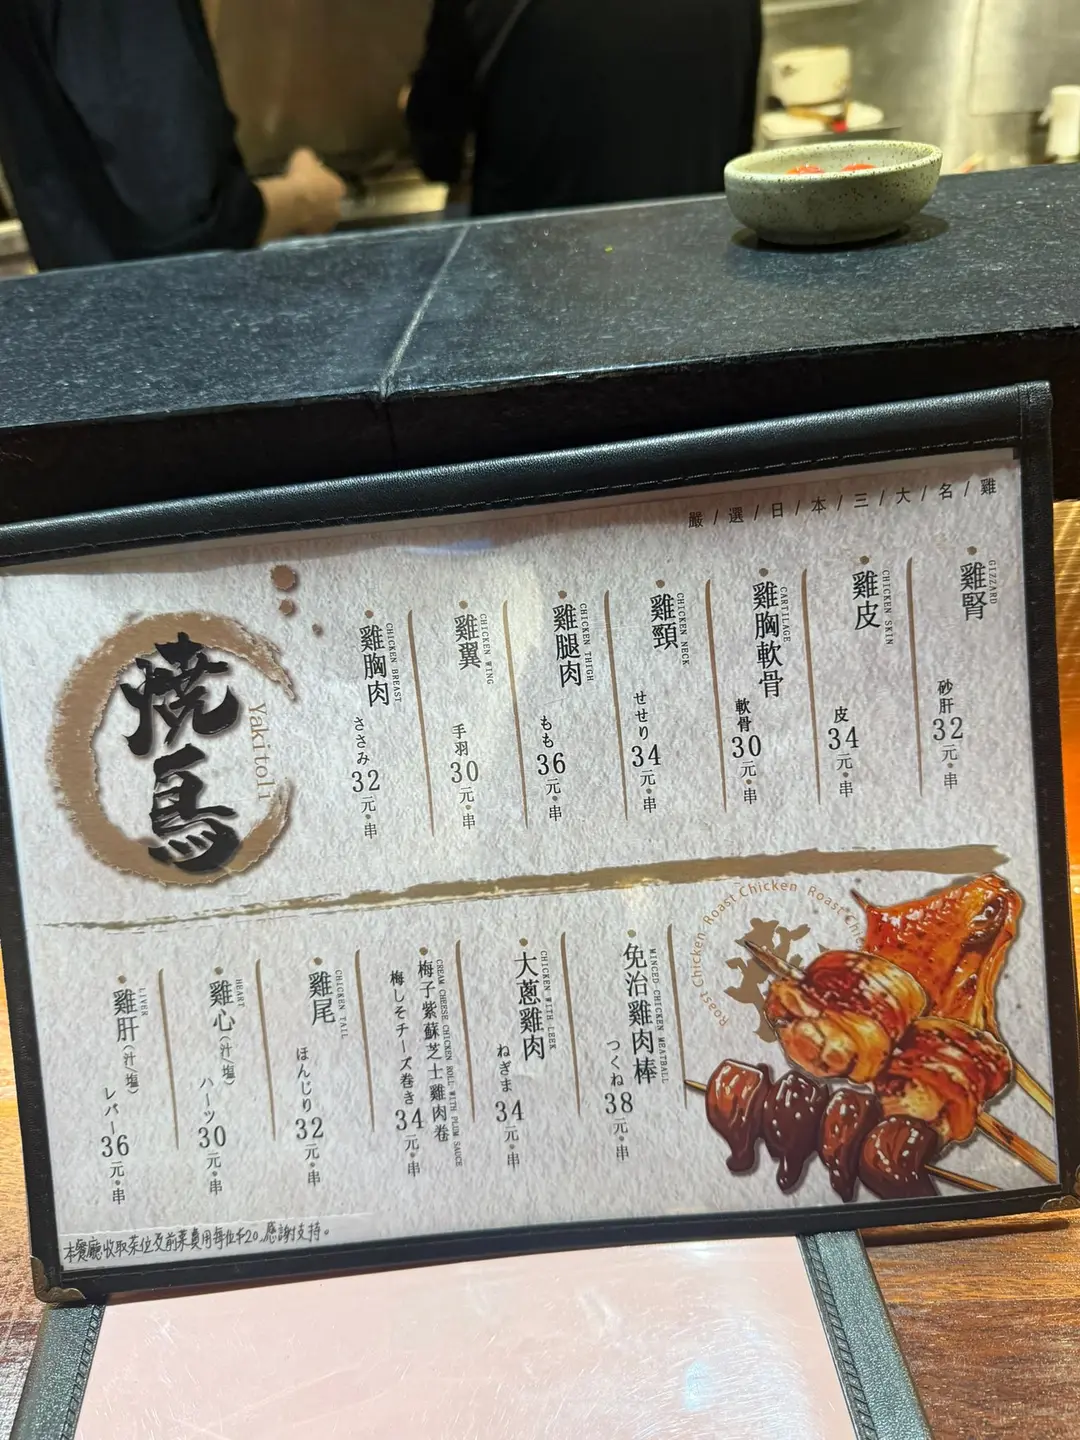 嚴/選/日/本/三/大/名/雞
燒鳥
Yakitoli
GIZZARD
雞腎
砂肝 32元•串
CHICKEN SKIN
雞皮
皮 34元•串
CARTILAGE
雞胸軟骨
軟骨 30元•串
CHICKEN NECK
雞頸
せせり 34元•串
CHICKEN THIGH
雞腿肉
もも 36元•串
CHICKEN WING
雞翼
手羽 30元•串
CHICKEN BREAST
雞胸肉
ささみ 32元•串
Roast Chicken Roast Chicken Roast Chi
MINCED CHICKEN MEATBALL
免治雞肉棒
つくね 38元•串
CHICKEN WITH LEEK
大蔥雞肉
ねぎま 34元•串
CREAM CHEESE CHICKEN ROLL WITH PLUM SAUCE
梅子紫蘇芝士雞肉卷
梅しそチーズ巻き 34元•串
CHICKEN TAIL
雞尾
ほんじり 32元•串
HEART
雞心(汁/塩)
ハーツ 30元•串
LIVER
雞肝(汁/塩)
レバー 36元•串
本餐廳收取茶位及前菜費用每位$20,感謝支持。